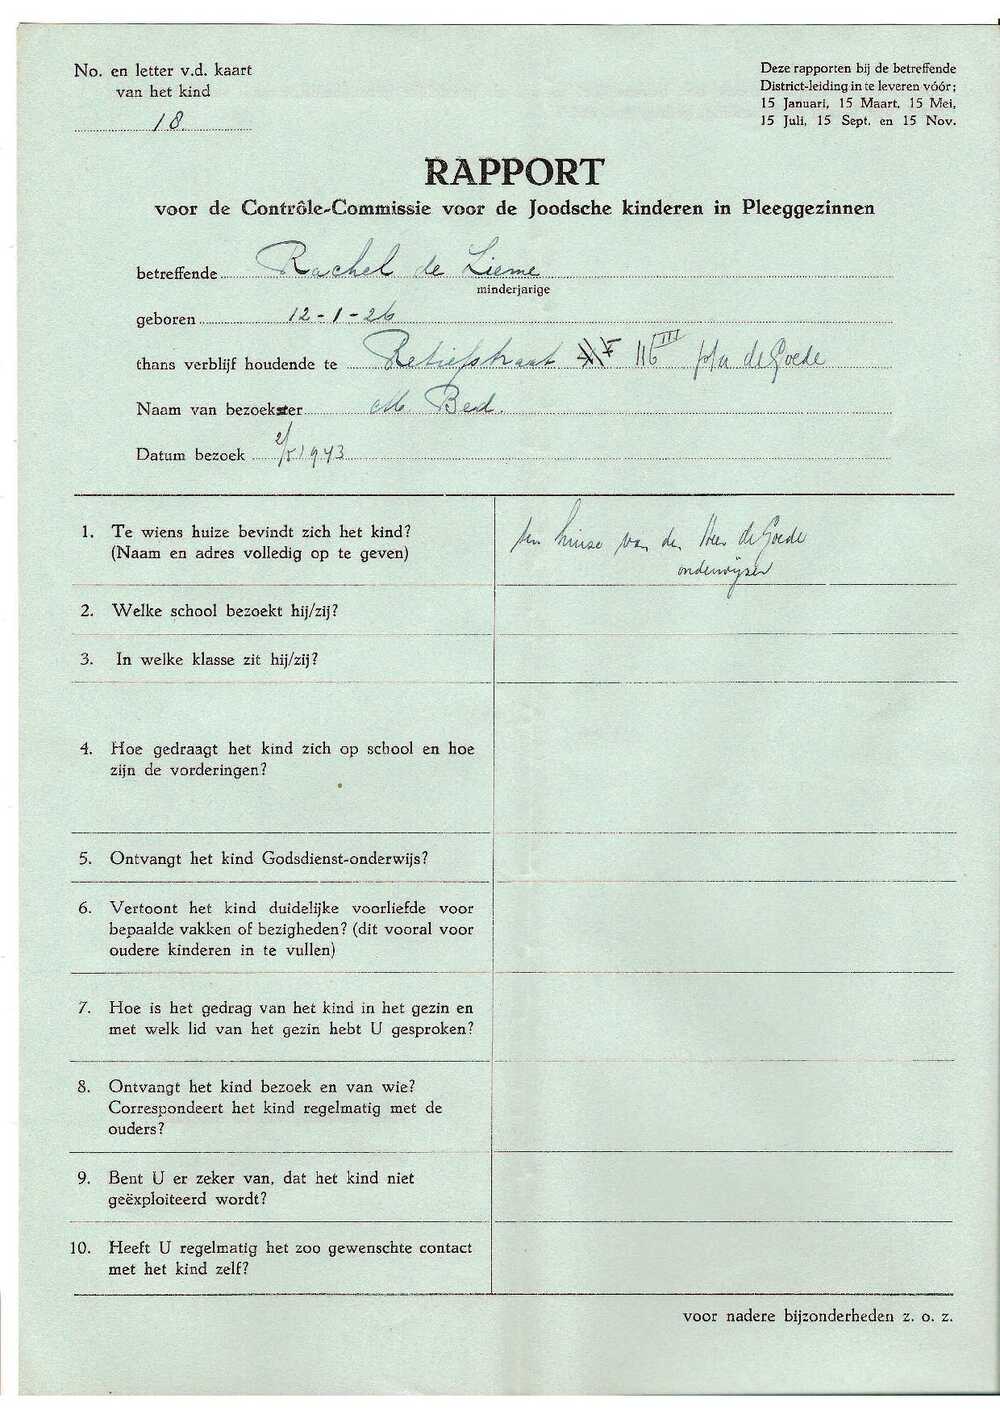 No. en letter v.d. kaart
van het kind
18.
Deze rapporten bij de betreffende
District-leiding in te leveren vóór;
15 Januari, 15 Maart, 15 Mei,
15 Juli, 15 Sept. en 15 Nov.
RAPPORT
voor de Contrôle-Commissie voor de Joodsche kinderen in Pleeggezinnen
betreffende Rachel de Lieme
minderjarige
geboren 12-1-26
thans verblijf houdende te Retiefstraat 116 III p/a de Goede
Naam van bezoekster M. Bed.
Datum bezoek 2/5 1943
1. Te wiens huize bevindt zich het kind?
(Naam en adres volledig op te geven)
ten huise van den Heer de Goede
onderwijzer
2. Welke school bezoekt hij/zij?
3. In welke klasse zit hij/zij?
4. Hoe gedraagt het kind zich op school en hoe
zijn de vorderingen?
5. Ontvangt het kind Godsdienst-onderwijs?
6. Vertoont het kind duidelijke voorliefde voor
bepaalde vakken of bezigheden? (dit vooral voor
oudere kinderen in te vullen)
7. Hoe is het gedrag van het kind in het gezin en
met welk lid van het gezin hebt U gesproken?
8. Ontvangt het kind bezoek en van wie?
Correspondeert het kind regelmatig met de
ouders?
9. Bent U er zeker van, dat het kind niet
geëxploiteerd wordt?
10. Heeft U regelmatig het zoo gewenschte contact
met het kind zelf?
voor nadere bijzonderheden z. o. z.